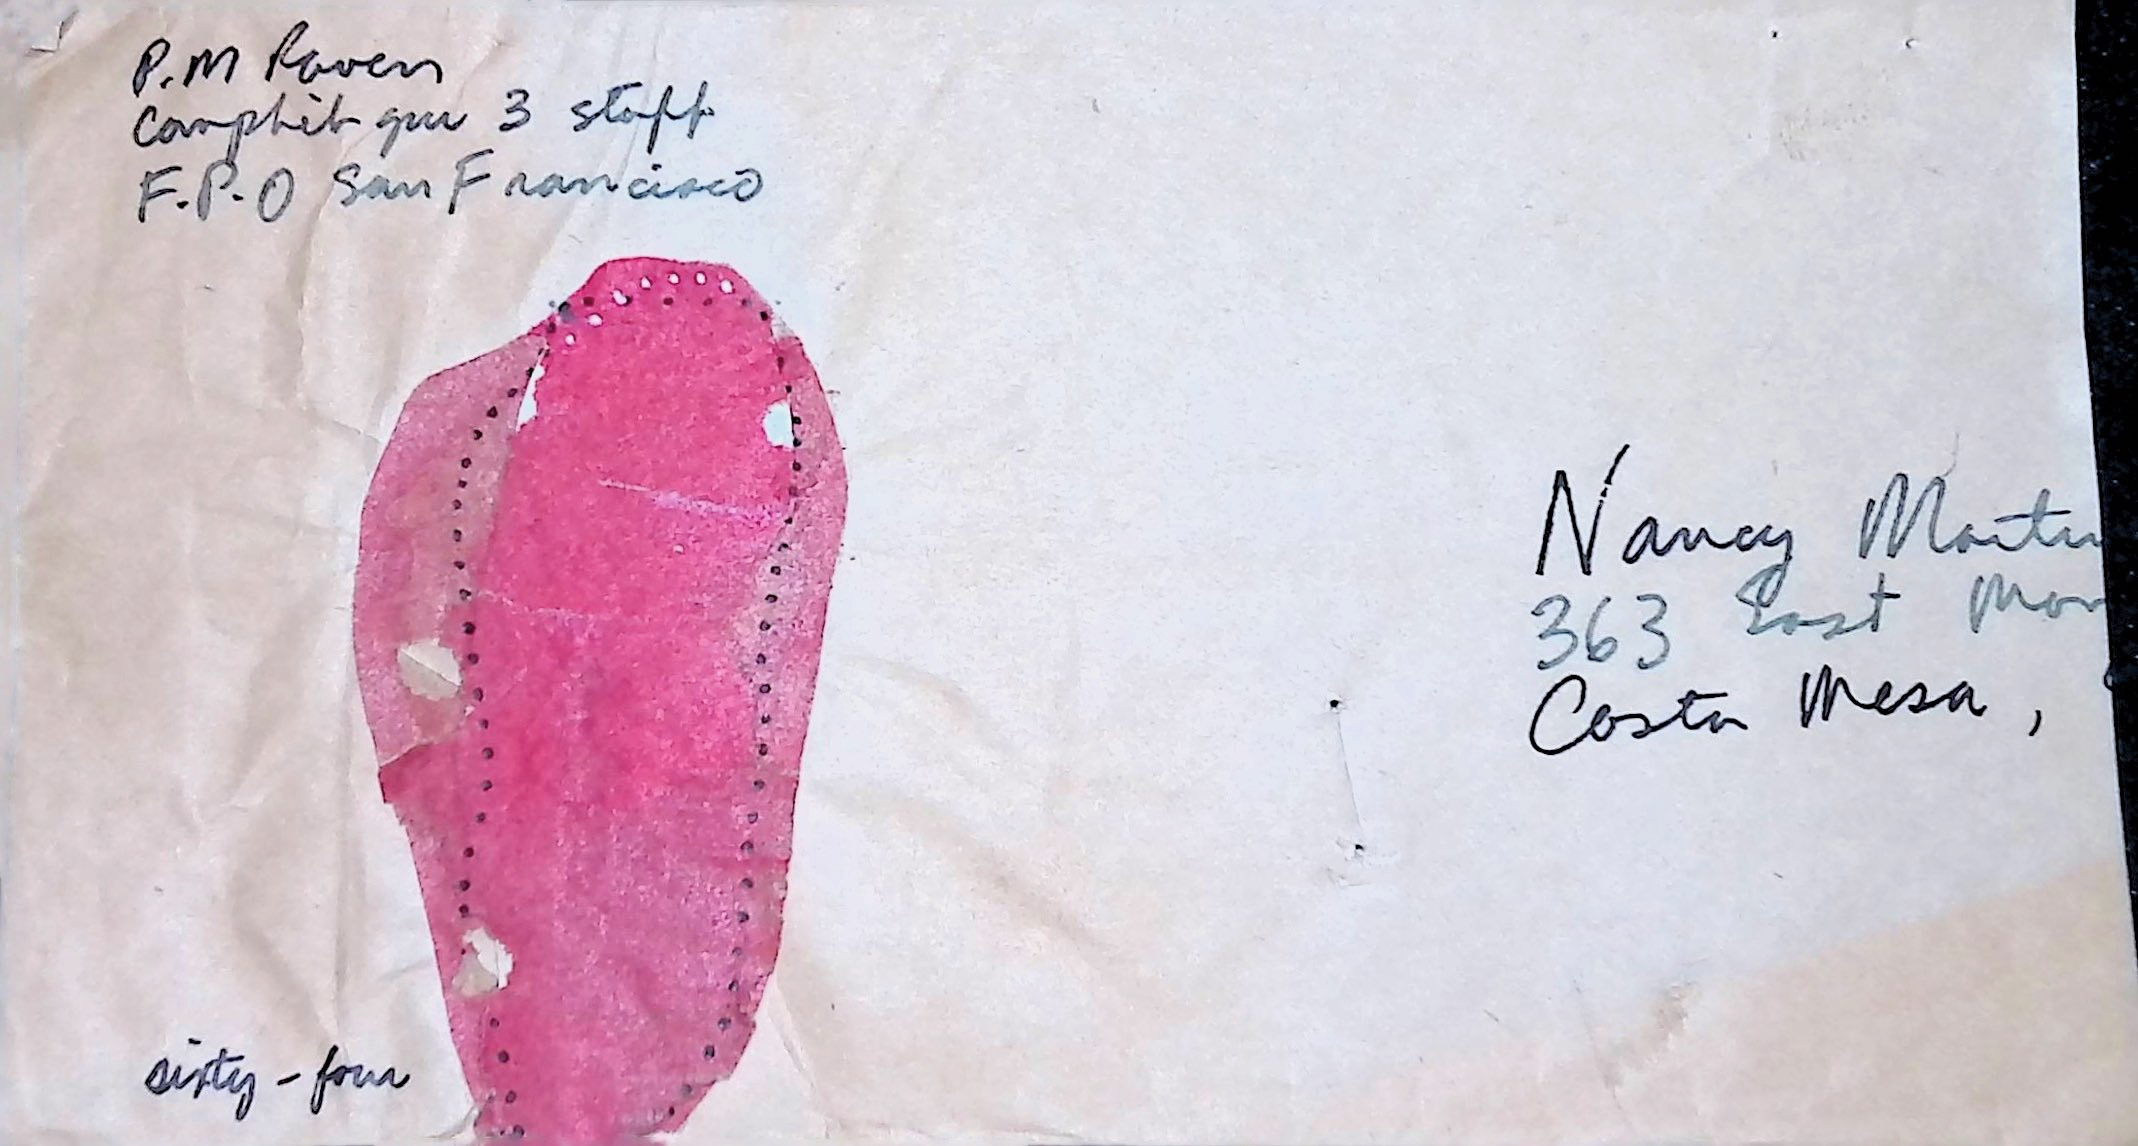 P.M Raven
Comphib gru 3 staff
F.P.O San Francisco
Nancy
363 East
Costa Mesa,
sixty-four